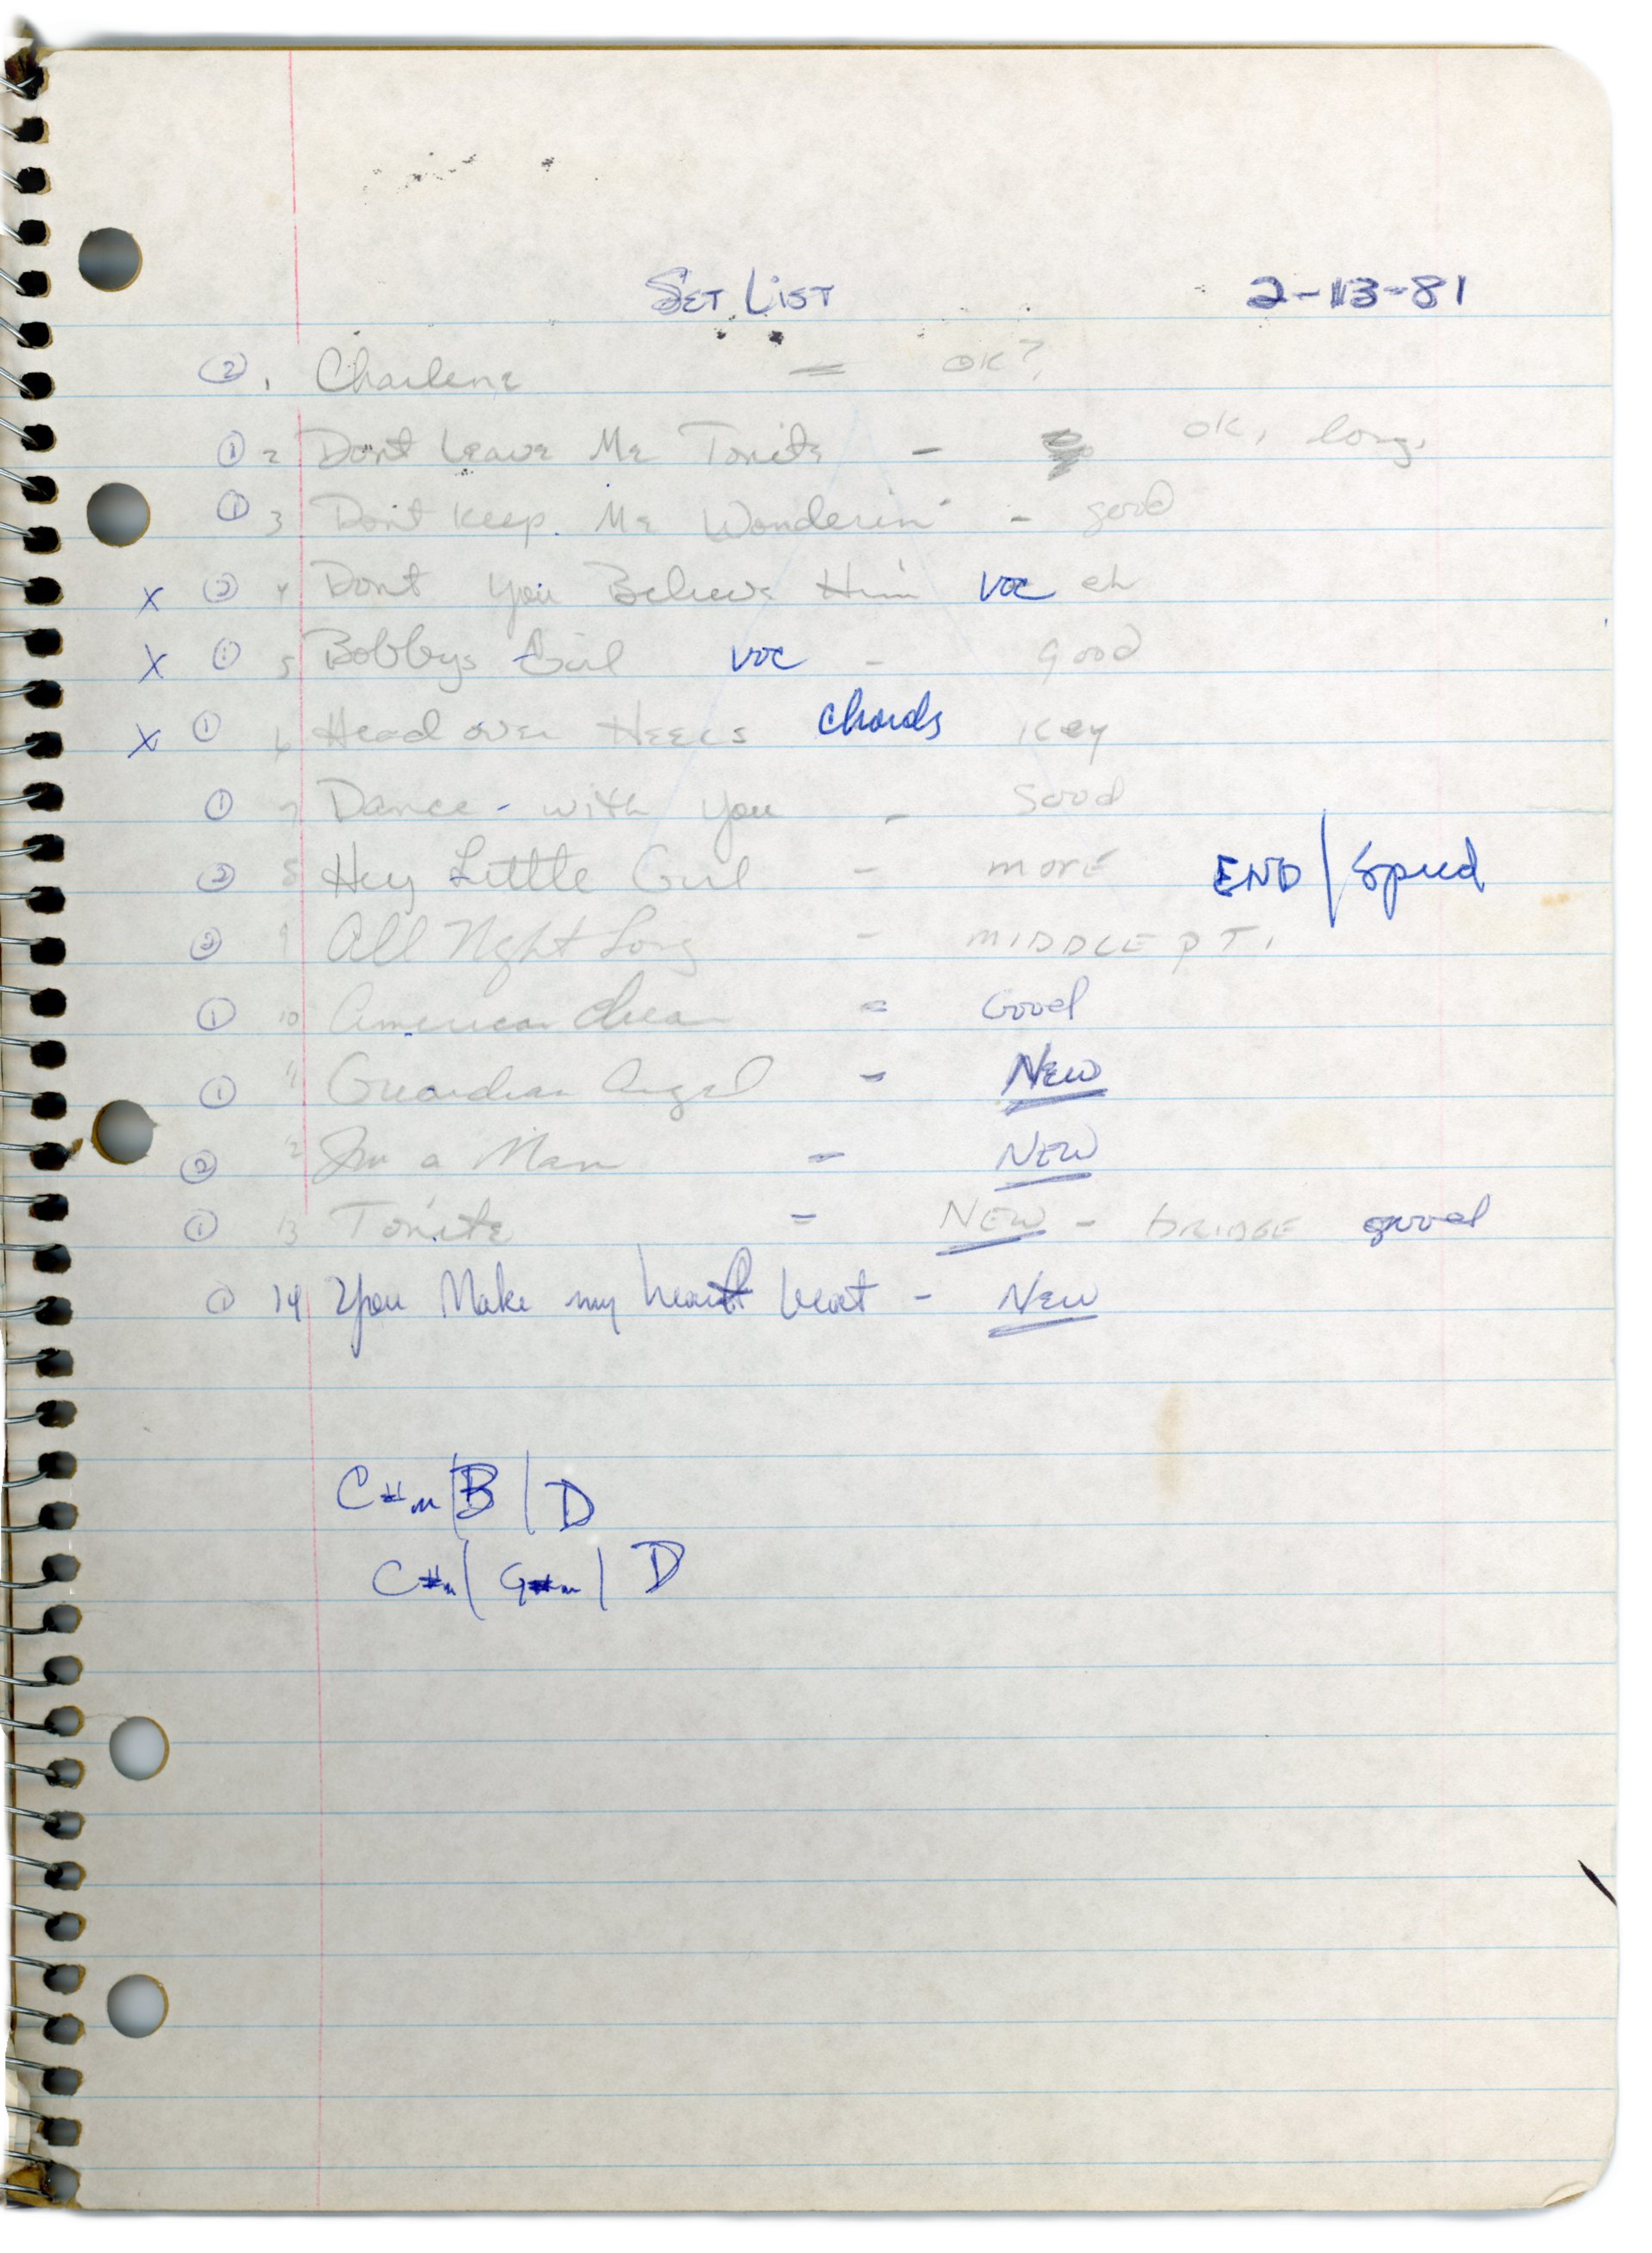 SET LIST 2-13-81
② 1 Charlene = OK?
① 2 Dont Leave Me Tonite - OK, long,
① 3 Don't Keep Me Wonderin' - good
X ② 4 Dont you Believe Him voc eh
X ① 5 Bobbys Girl voc - good
X ① 6 Head over Heels chords Key
① 7 Dance - with you - Good
② 8 Hey Little Girl - more END / Speed
② 9 All Night Long - MIDDLE PT.
① 10 American dream = Good
① 11 Guardian Angel - NEW
② 12 I'm a Man - NEW
① 13 Tonite - NEW - BRIDGE good
① 14 You Make my heart beat - New
C#m | B | D
C#m | G#m | D